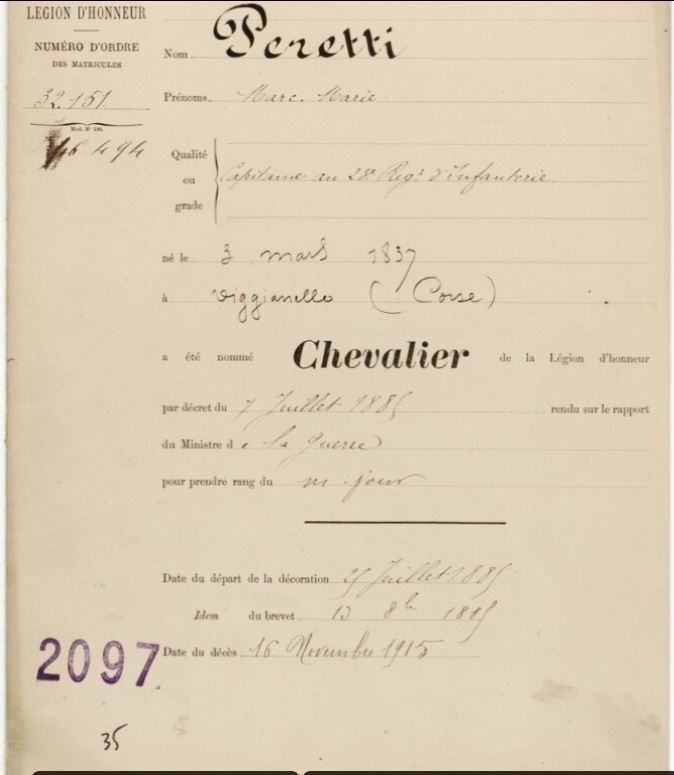 LEGION D'HONNEUR
NUMÉRO D'ORDRE
DES MATRICULES
32.151
Mod. N°
46.494
Nom Peretti
Prénoms. Marc. Marie
Qualité
ou
grade
Capitaine au 28e Regt d'Infanterie
né le 3 mars 1837
à Viggianello (Corse)
a été nommé Chevalier de la Légion d'honneur
par décret du 7 Juillet 1885 rendu sur le rapport
du Ministre de la Guerre
pour prendre rang du m. jour
Date du départ de la décoration Juillet 1885
Idem du brevet 13 8b 1885
Date du décès 16 Novembre 1915
2097
35